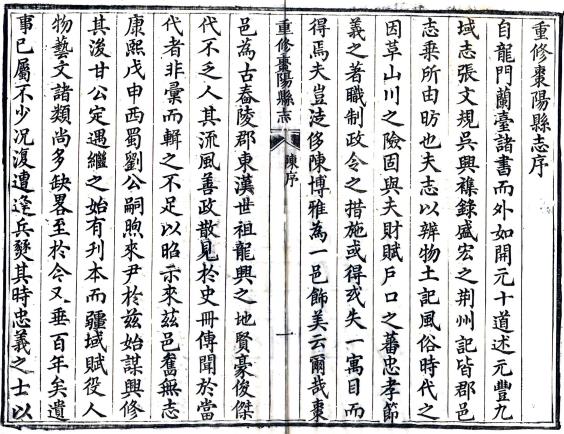 重修棗陽縣志序
自龍門蘭臺諸書而外如開元十道述元豐九
域志張文規吳興襍錄盛宏之荆州記皆郡邑
志乘所由昉也夫志以辨物土記風俗時代之
因革山川之險固與夫財賦戶口之蕃忠孝節
義之著職制政令之措施或得或失一寓目而
得焉夫豈徒侈陳博雅為一邑飾美云爾哉棗
重修棗陽縣志
陳序
一
邑為古舂陵郡東漢世祖龍興之地賢豪俊傑
代不乏人其流風善政散見於史冊傳聞於當
代者非彙而輯之不足以昭示來茲邑舊無志
康熙戊申西蜀劉公嗣煦來尹於兹始謀興修
其後甘公定遇繼之始有刊本而疆域賦役人
物藝文諸類尚多缺畧至於今又垂百年矣遺
事已屬不少況復遭逢兵燹其時忠義之士以